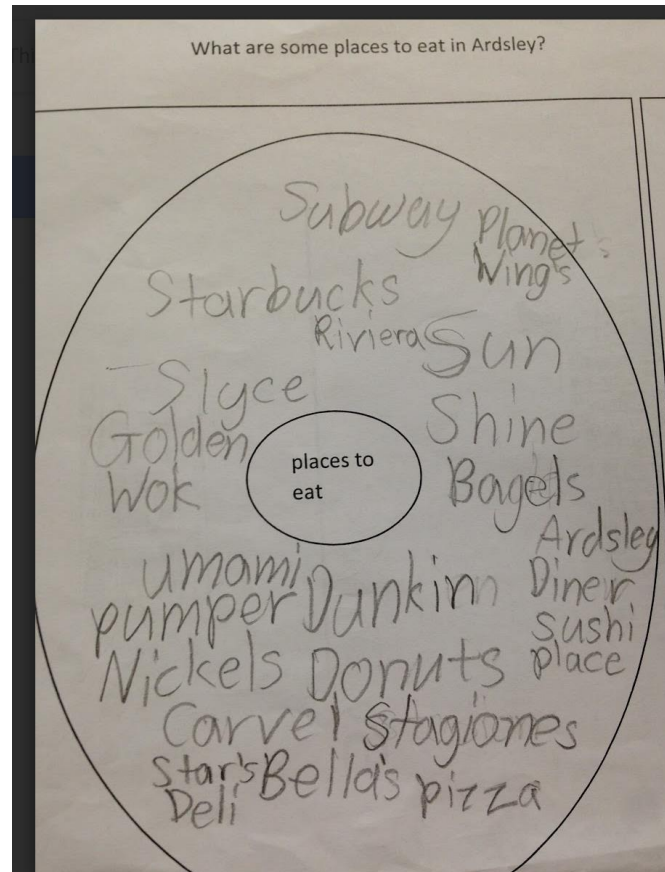 What are some places to eat in Ardsley?
Subway
Planet
Wing's
Starbucks
Riviera
Sun
Shine
Bagels
Slyce
Golden
Wok
places to
eat
Ardsley
Diner
umami
pumper
Nickels
Dunkinn
Donuts
sushi
place
Carvel
Stagiones
Star's
Deli
Bella's pizza